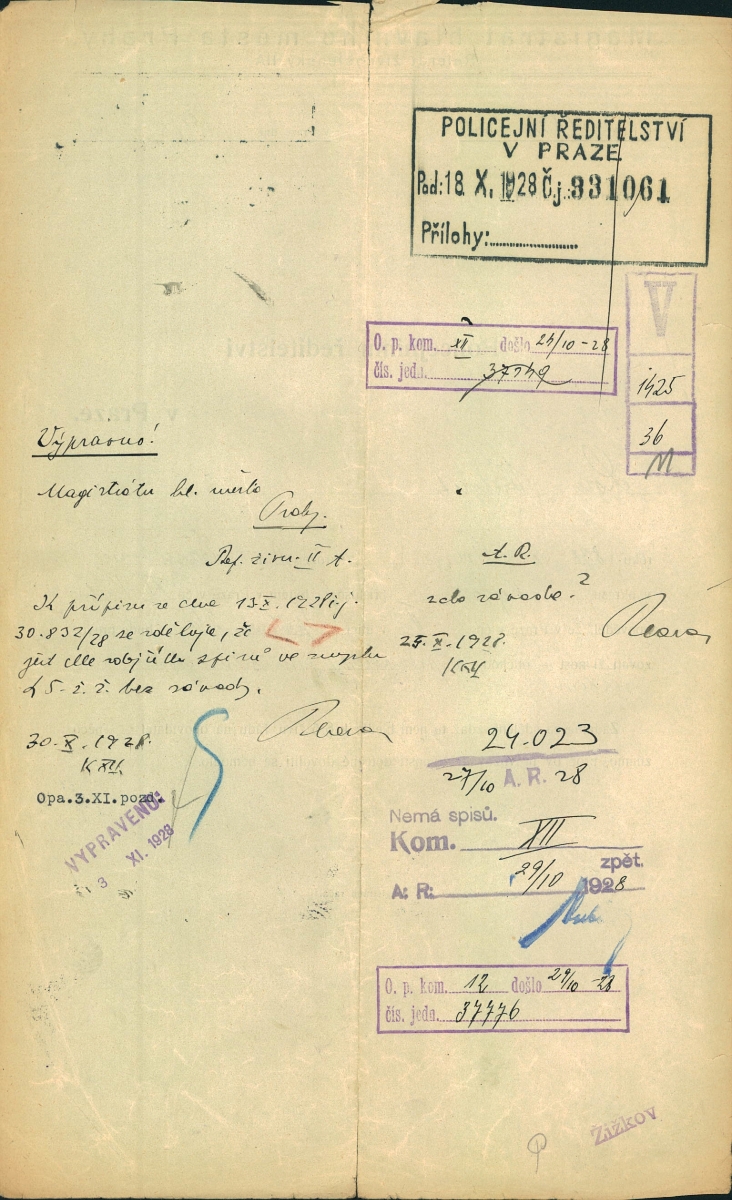 POLICEJNÍ ŘEDITELSTVÍ
V PRAZE
Pod: 18. X. 1928 Čj.: 331061
Přílohy:
V
1425
36
O. p. kom. XII došlo 24/10 -28
čís. jedn.
Výpravno!
Magistrátu hl. města
Prahy.
Ref. živn. II A.
K přípisu ze dne 13.X.1928 čj.
30.832/28 se sděluje, že
jest dle zdejších spisů ve smyslu
§ 5 ž. ř. bez závady.
30.X.1928.
K XII.
Opa.3.XI.pozd.
VYPRAVENO:
3 XI. 1928
A. R.
zda závada?
25.X.1928.
K XII
24.023
27/10 A. R. 28
Nemá spisů.
Kom. XII
zpět.
A: R: 29/10 1928
O. p. kom. 12 došlo 29/10 -28
čís. jedn. 37776
Žižkov